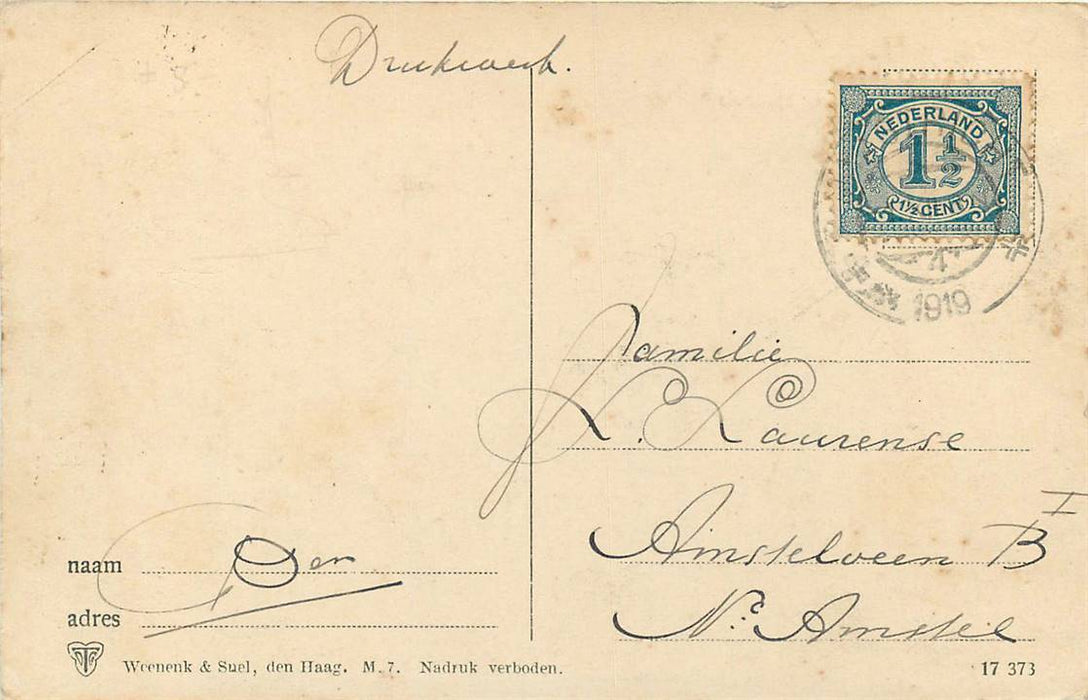 Drukwerk.
NEDERLAND
1 1/2
1½ CENT
1919
Familie
K. Laurense
Amstelveen B I
Nr. Amstel
naam
adres
Weenenk & Snel, den Haag. M. 7. Nadruk verboden.
17 373